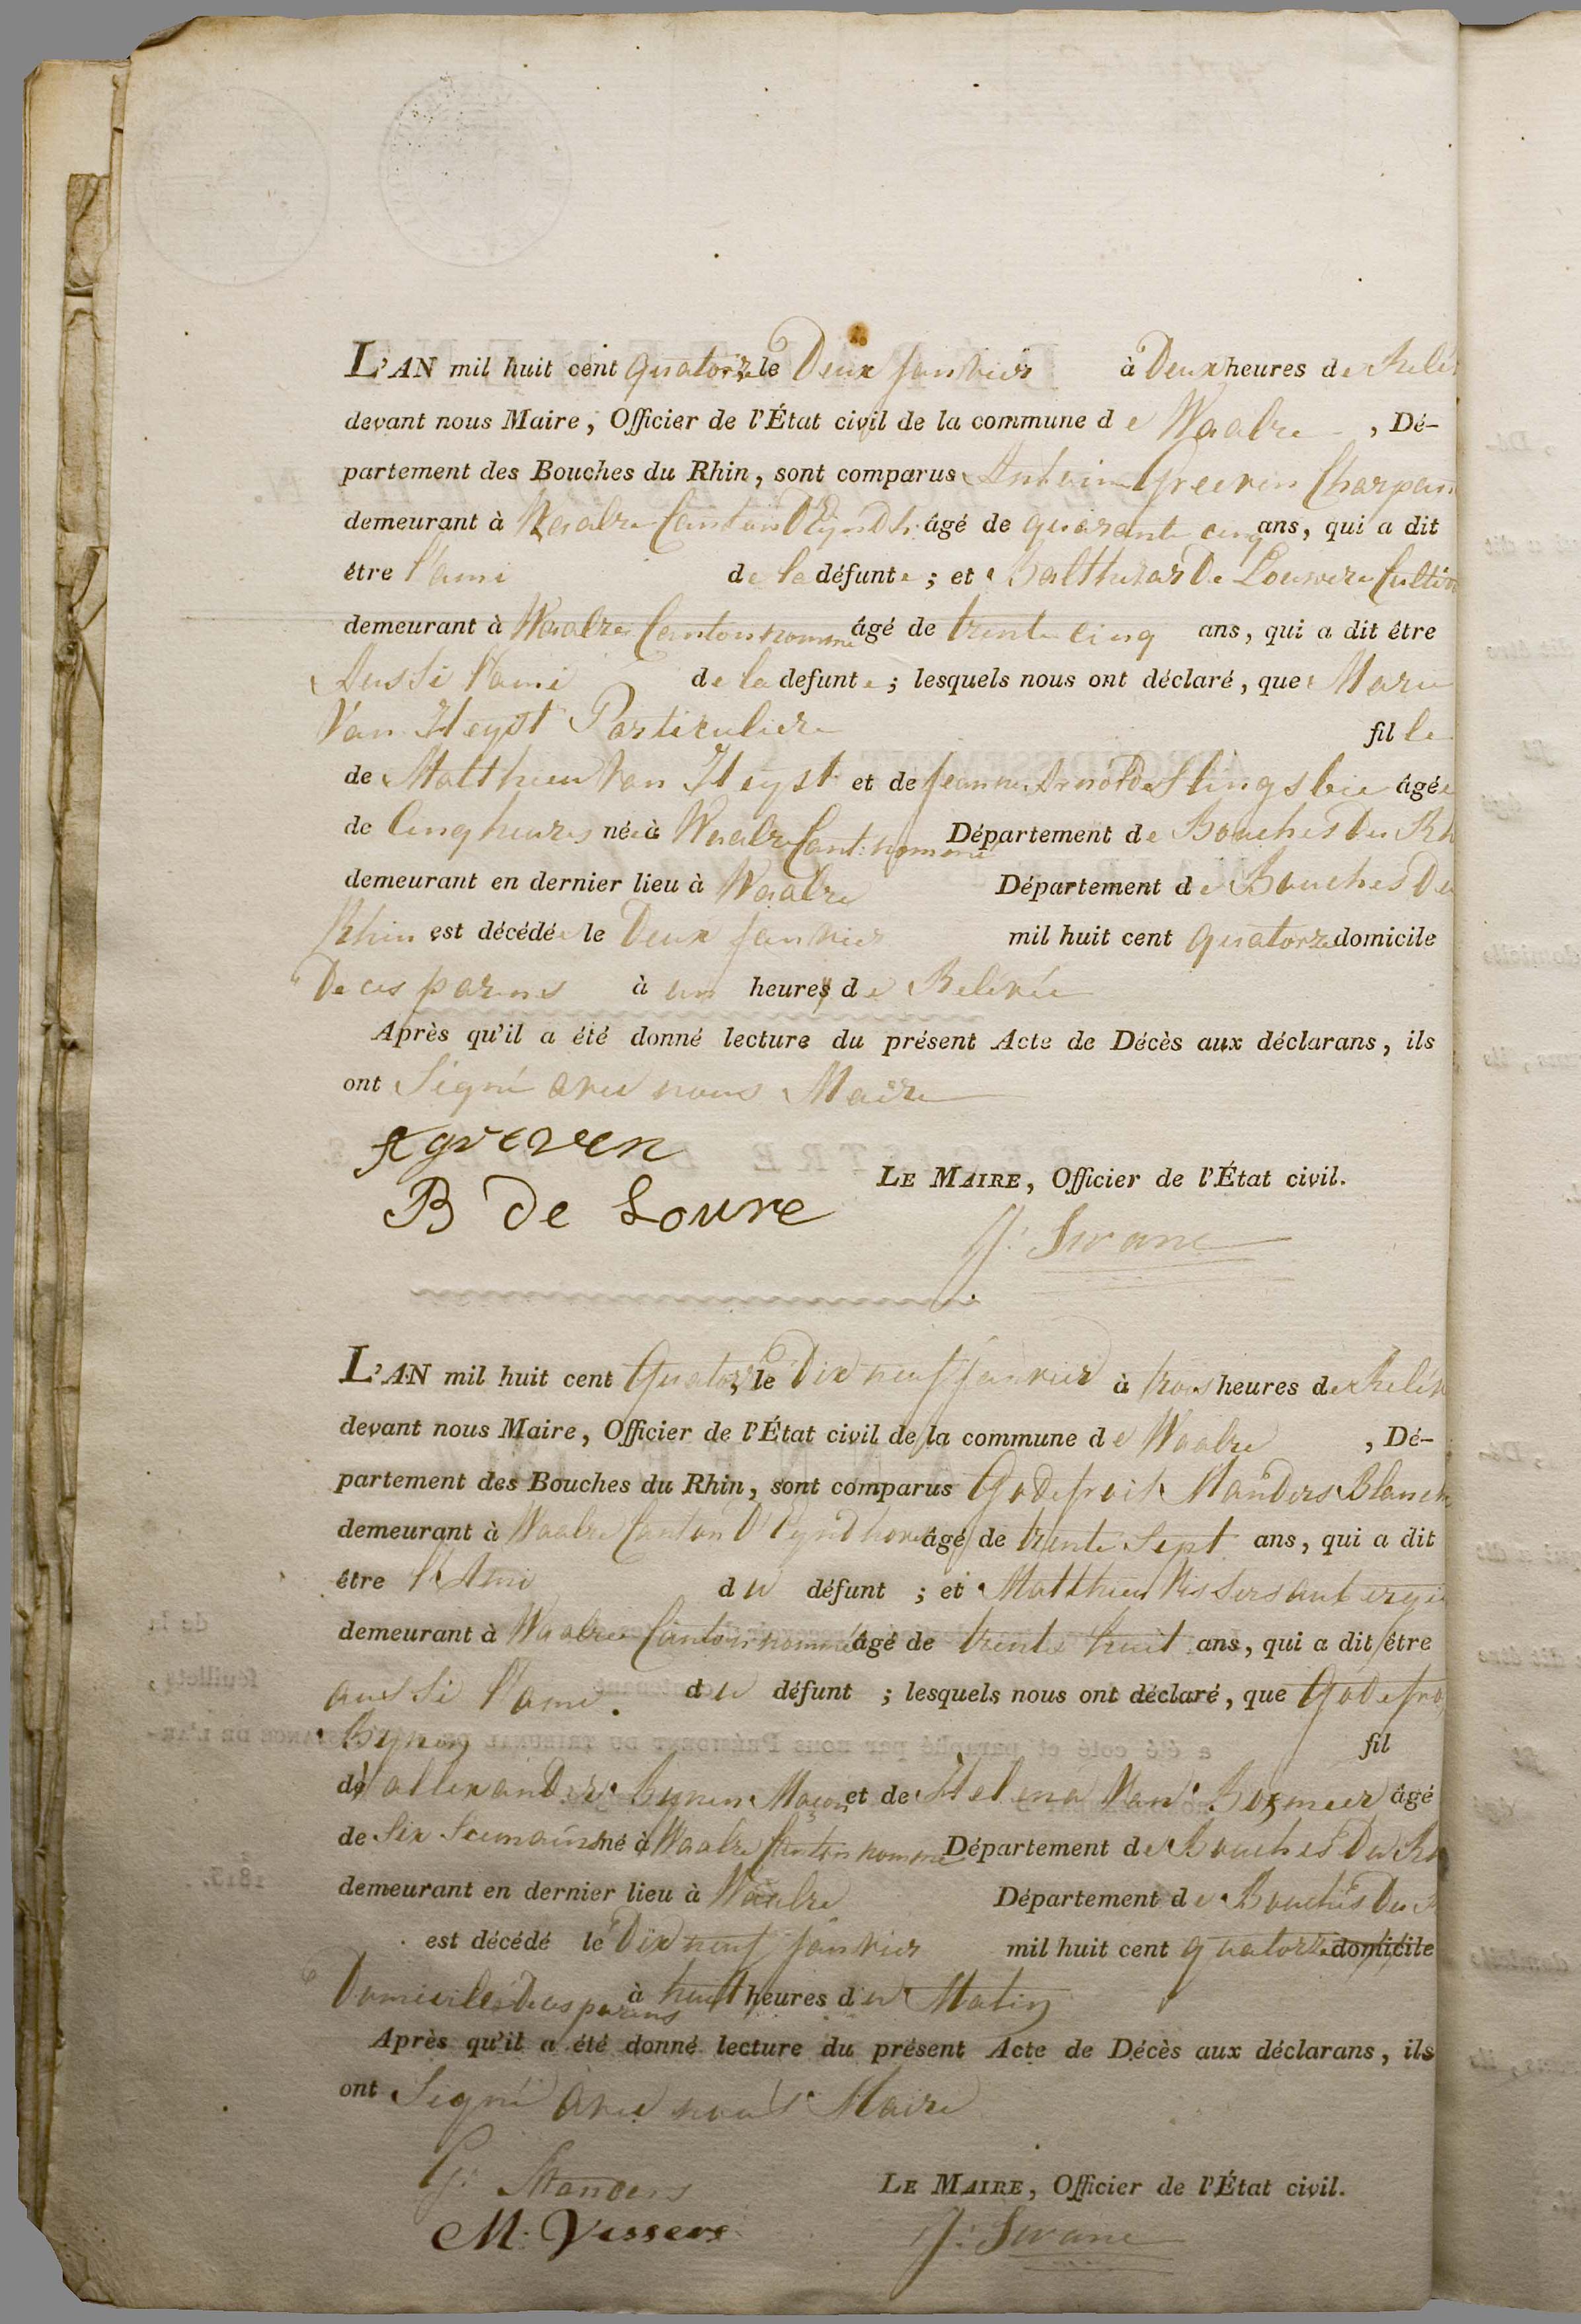 L'AN mil huit cent quatorze le Deux Janvier à Deux heures de Relév
devant nous Maire, Officier de l'État civil de la commune de Waalre, Dé-
partement des Bouches du Rhin, sont comparus Antoine Greeven Charpen
demeurant à Waalre Canton D'Eyndh: âgé de quarante cinq ans, qui a dit
être l'ami de la défunte; et Balthazar De Louwere Cultiv
demeurant à Waalre Canton nommé âgé de trente cinq ans, qui a dit être
Aussi l'ami de la defunte; lesquels nous ont déclaré, que Marie
Van Heyst Particuliere fille
de Matthieu Van Heyst et de Jeanne Arnolde Slingsbie âgée
de Cinq heures née à Waalre Cant: nommé Département de Bouches Du Rh
demeurant en dernier lieu à Waalre Département de Bouches Du
Rhin est décédée le Deux Janvier mil huit cent quatorze domicile
De ces parens à un heures de Relévée
Après qu'il a été donné lecture du présent Acte de Décès aux déclarans, ils
ont Signé avec nous Maire
A greven
B De Louvre
LE MAIRE, Officier de l'État civil.
J: Swane
L'AN mil huit cent Quatorze le Dix neuf Janvier à trois heures de Relév
devant nous Maire, Officier de l'État civil de la commune de Waalre, Dé-
partement des Bouches du Rhin, sont comparus Godefroit Manders Blanch
demeurant à Waalre Canton D'Eyndhove âgé de trente Sept ans, qui a dit
être l'Ami du défunt; et Matthieu Vissers aubergi
demeurant à Waalre Canton nommé âgé de trente huit ans, qui a dit être
aussi l'ami du défunt; lesquels nous ont déclaré, que Godefro
Bynen fil
de allexander Bynen Maçon et de Helena Van Boxmeer âgé
de Six Semaines né à Waalre Canton nommé Département de Bouches Du Rh
demeurant en dernier lieu à Waalre Département de Bouches Du R
est décédé le Dix neuf Janvier mil huit cent quatorze domicile
Domicile De ces parens à huit heures du Matin
Après qu'il a été donné lecture du présent Acte de Décès aux déclarans, ils
ont Signé avec nous Maire
G: Manders
M: Vissers
LE MAIRE, Officier de l'État civil.
J: Swane